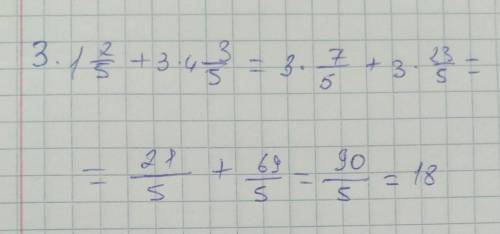 3 · 1 2/5 + 3 · 4 3/5 = 3 · 7/5 + 3 · 23/5 =
= 21/5 + 69/5 = 90/5 = 18